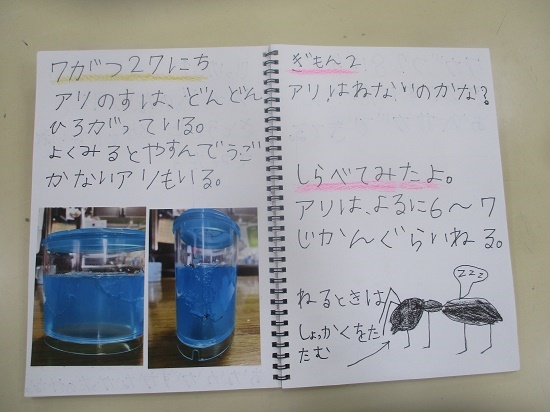 7がつ27にち
アリのすは、どんどん
ひろがっている。
よくみるとやすんでうご
かないアリもいる。
ぎもん2
アリはねないのかな?
しらべてみたよ。
アリは、よるに6〜7
じかんぐらいねる。
ねるときは
しょっかくをた
たむ
ZZZ